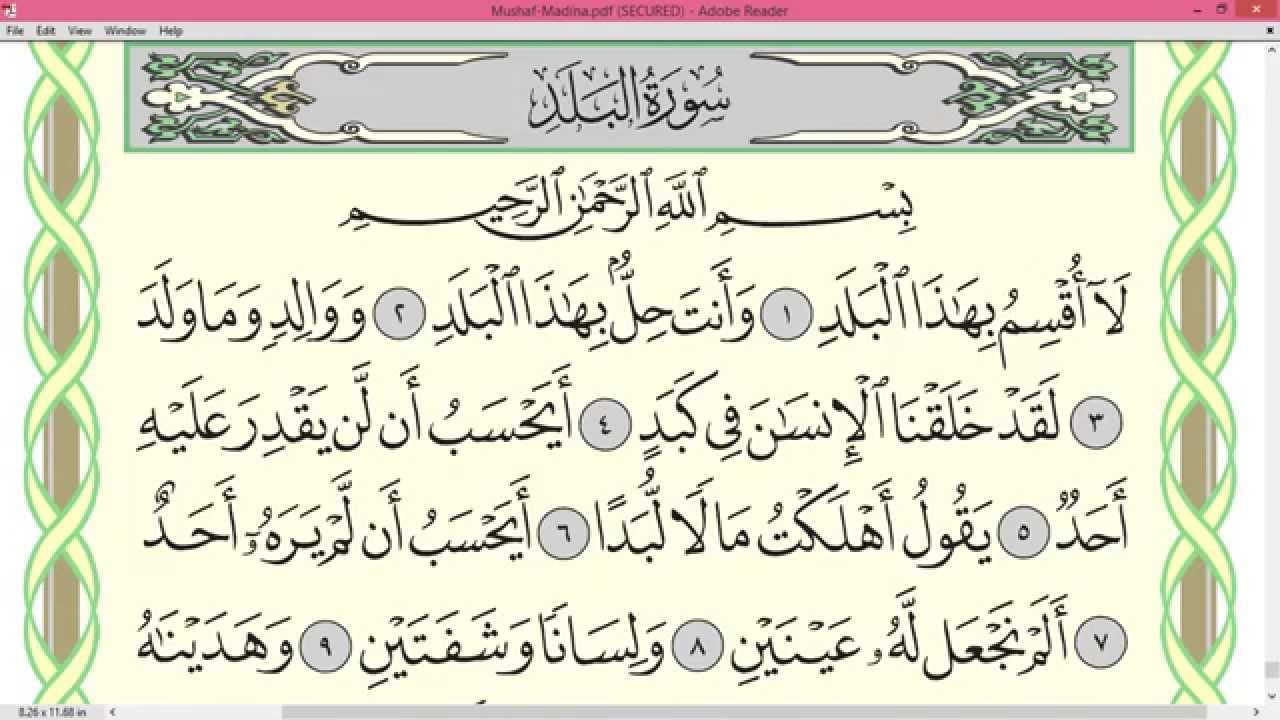 Mushaf-Madina.pdf (SECURED) - Adobe Reader
File Edit View Window Help
سُورَةُ البَلَدِ
بِسْمِ ٱللَّهِ ٱلرَّحْمَٰنِ ٱلرَّحِيمِ
لَآ أُقْسِمُ بِهَٰذَا ٱلْبَلَدِ ١ وَأَنتَ حِلٌّۢ بِهَٰذَا ٱلْبَلَدِ ٢ وَوَالِدٍ وَمَا وَلَدَ
٣ لَقَدْ خَلَقْنَا ٱلْإِنسَٰنَ فِى كَبَدٍ ٤ أَيَحْسَبُ أَن لَّن يَقْدِرَ عَلَيْهِ
أَحَدٌ ٥ يَقُولُ أَهْلَكْتُ مَالًا لُّبَدًا ٦ أَيَحْسَبُ أَن لَّمْ يَرَهُۥٓ أَحَدٌ
٧ أَلَمْ نَجْعَل لَّهُۥ عَيْنَيْنِ ٨ وَلِسَانًا وَشَفَتَيْنِ ٩ وَهَدَيْنَٰهُ
8.26 x 11.68 in